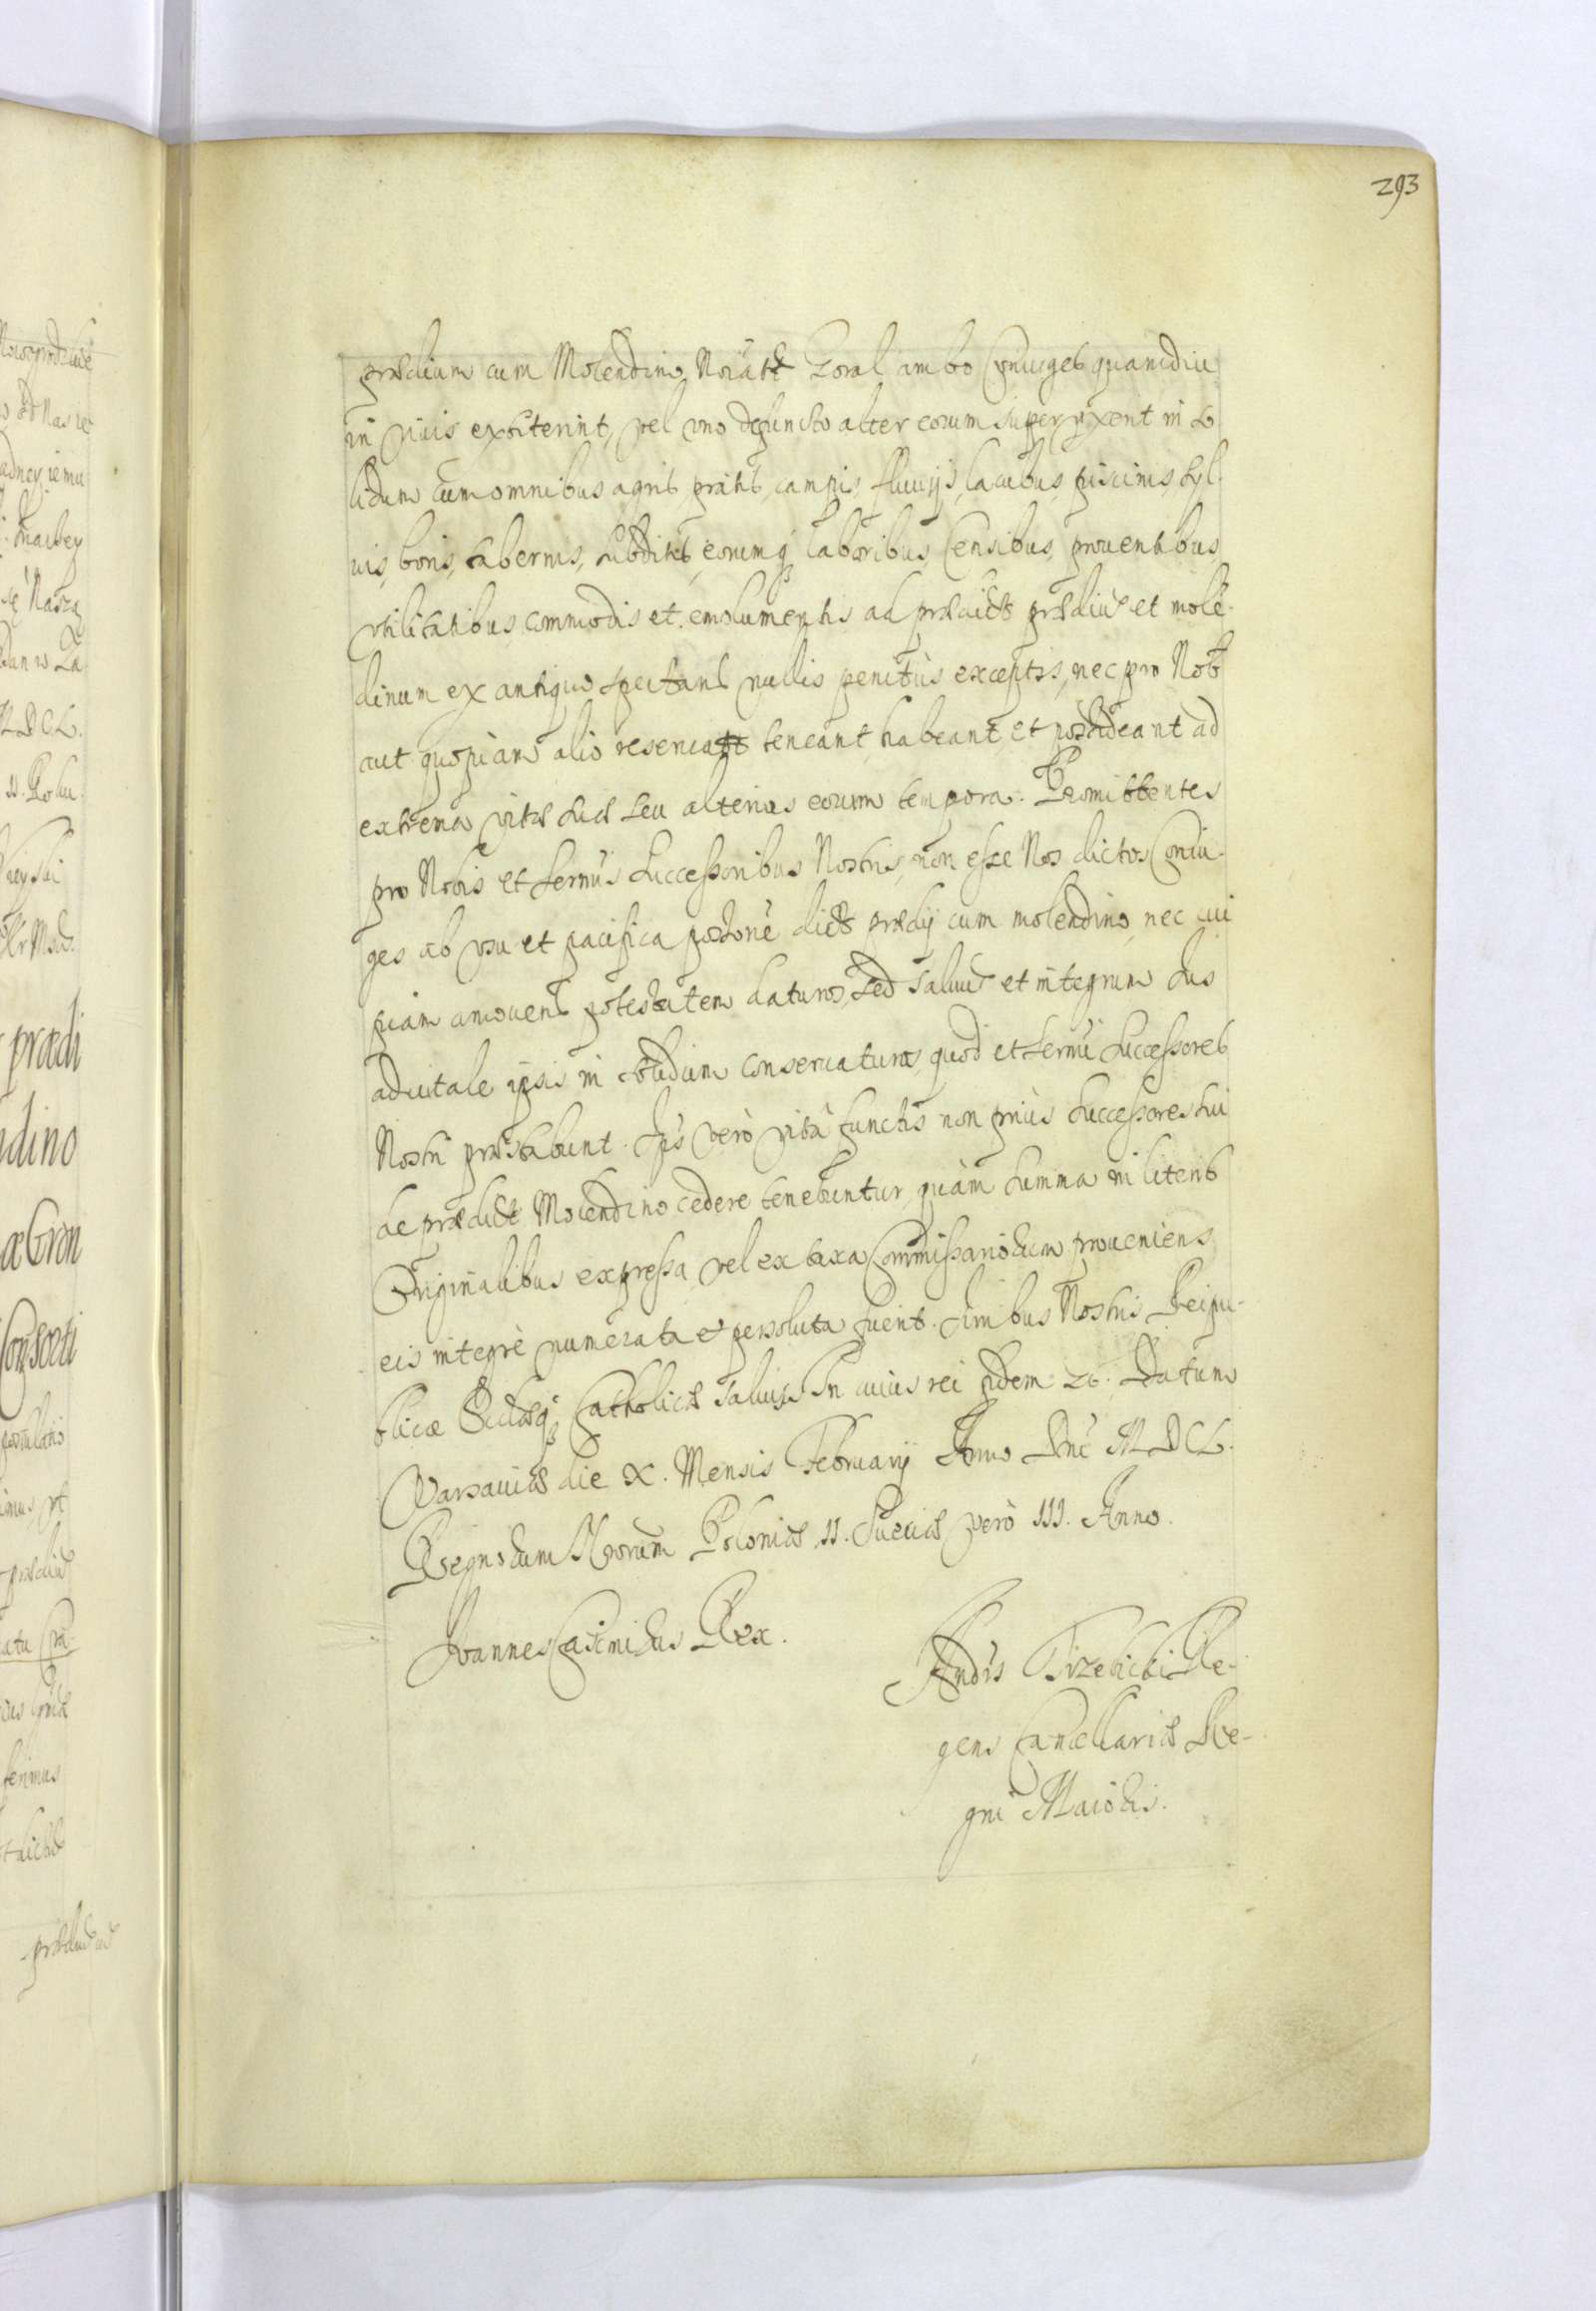 293
prædium cum Molendino Noiãto Zoral ambo Coniuges quamdiu
in viuis extiterint, vel vno defuncto alter eorum superuixerit in so
lidum cum omnibus agris, pratis, campis, fluuijs, lacubus, piscinis, syl-
uis, boris, tabernis, subditis, eorumq; laboribus, Censibus, prouentibus,
vtilitatibus, commodis et emolumentis ad prædict prædiũ et molẽ-
dinum ex antiquo spectant nullis penitùs exceptis, nec pro Nob
aut quopiam alio reseruat teneant, habeant, et possideant ad
extrema vitæ suæ seu alterius eorum tempora. Promittentes
pro Nobis et Sermis Successoribus Nostris, non esse Nos dictos Coniu-
ges ab vsu et pacifica possone dicti prædij cum molendino, nec cui
piam amouend potestatem daturos, Sed saluũ et integrum Ius
aduitale ipsis in solidum conseruaturos, quod et Sermi Successores
Nostri præstabunt. Ipsis verò vitâ functis non priùs Successores sui
de prædict Molendino cedere tenebuntur, quàm summa in literis
Originalibus expressa, vel ex taxa Commissariorum proueniens
eis integrè numerata et persoluta fuerit. Iuribus Nostris Reipu-
blicæ Ecclæq; Catholicæ saluis. In cuius rei fidem &c. Datum
Varsauiæ die X. Mensis February Anno Dni MDCL.
Regnorum Nrorum Poloniæ II. Sueciæ verò III. Anno.
Joannes Casimirus Rex.
Andrs Trzebicki Re-
gens Cancellariæ Re-
gni Maioris.